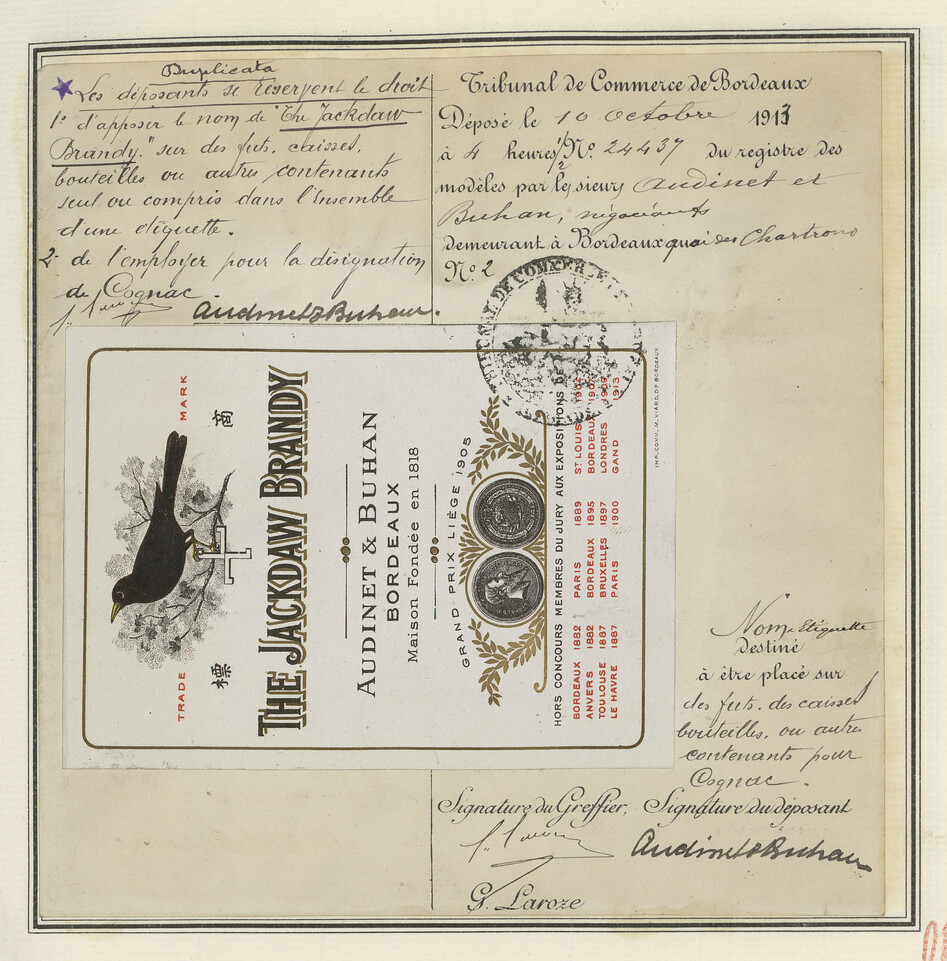 Duplicata
Les déposants se réservent le droit
1º d'apposer le nom de "The Jackdaw
Brandy." sur des futs, caisses,
bouteilles ou autres contenants
seul ou compris dans l'ensemble
d'une etiquette.
2º de l'employer pour la désignation
de Cognac.
Audinet & Buhan.
Tribunal de Commerce de Bordeaux
Déposé le 10 Octobre 1913
à 4 heures 1/2 Nº 24437 du registre des
modèles par les sieurs Audinet et
Buhan, négociants
demeurant à Bordeaux quai des Chartrons
Nº 2
TRADE MARK
商標
THE JACKDAW BRANDY
AUDINET & BUHAN
BORDEAUX
Maison Fondée en 1818
GRAND PRIX LIÈGE 1905
HORS CONCOURS MEMBRES DU JURY AUX EXPOSITIONS DE
BORDEAUX 1882 PARIS 1889 ST LOUIS 1904
ANVERS 1882 BORDEAUX 1895 BORDEAUX 1907
TOULOUSE 1887 BRUXELLES 1897 LONDRES 1909
LE HAVRE 1887 PARIS 1900 GAND 1913
IMP. COMM. M. VIARD, DE BORDEAUX
Nom-Etiquette
Destiné
à être placé sur
des futs. des caisses
bouteilles, ou autres
contenants pour
Cognac.
Signature du Greffier, Signature du déposant
Audinet & Buhan
G. Laroze